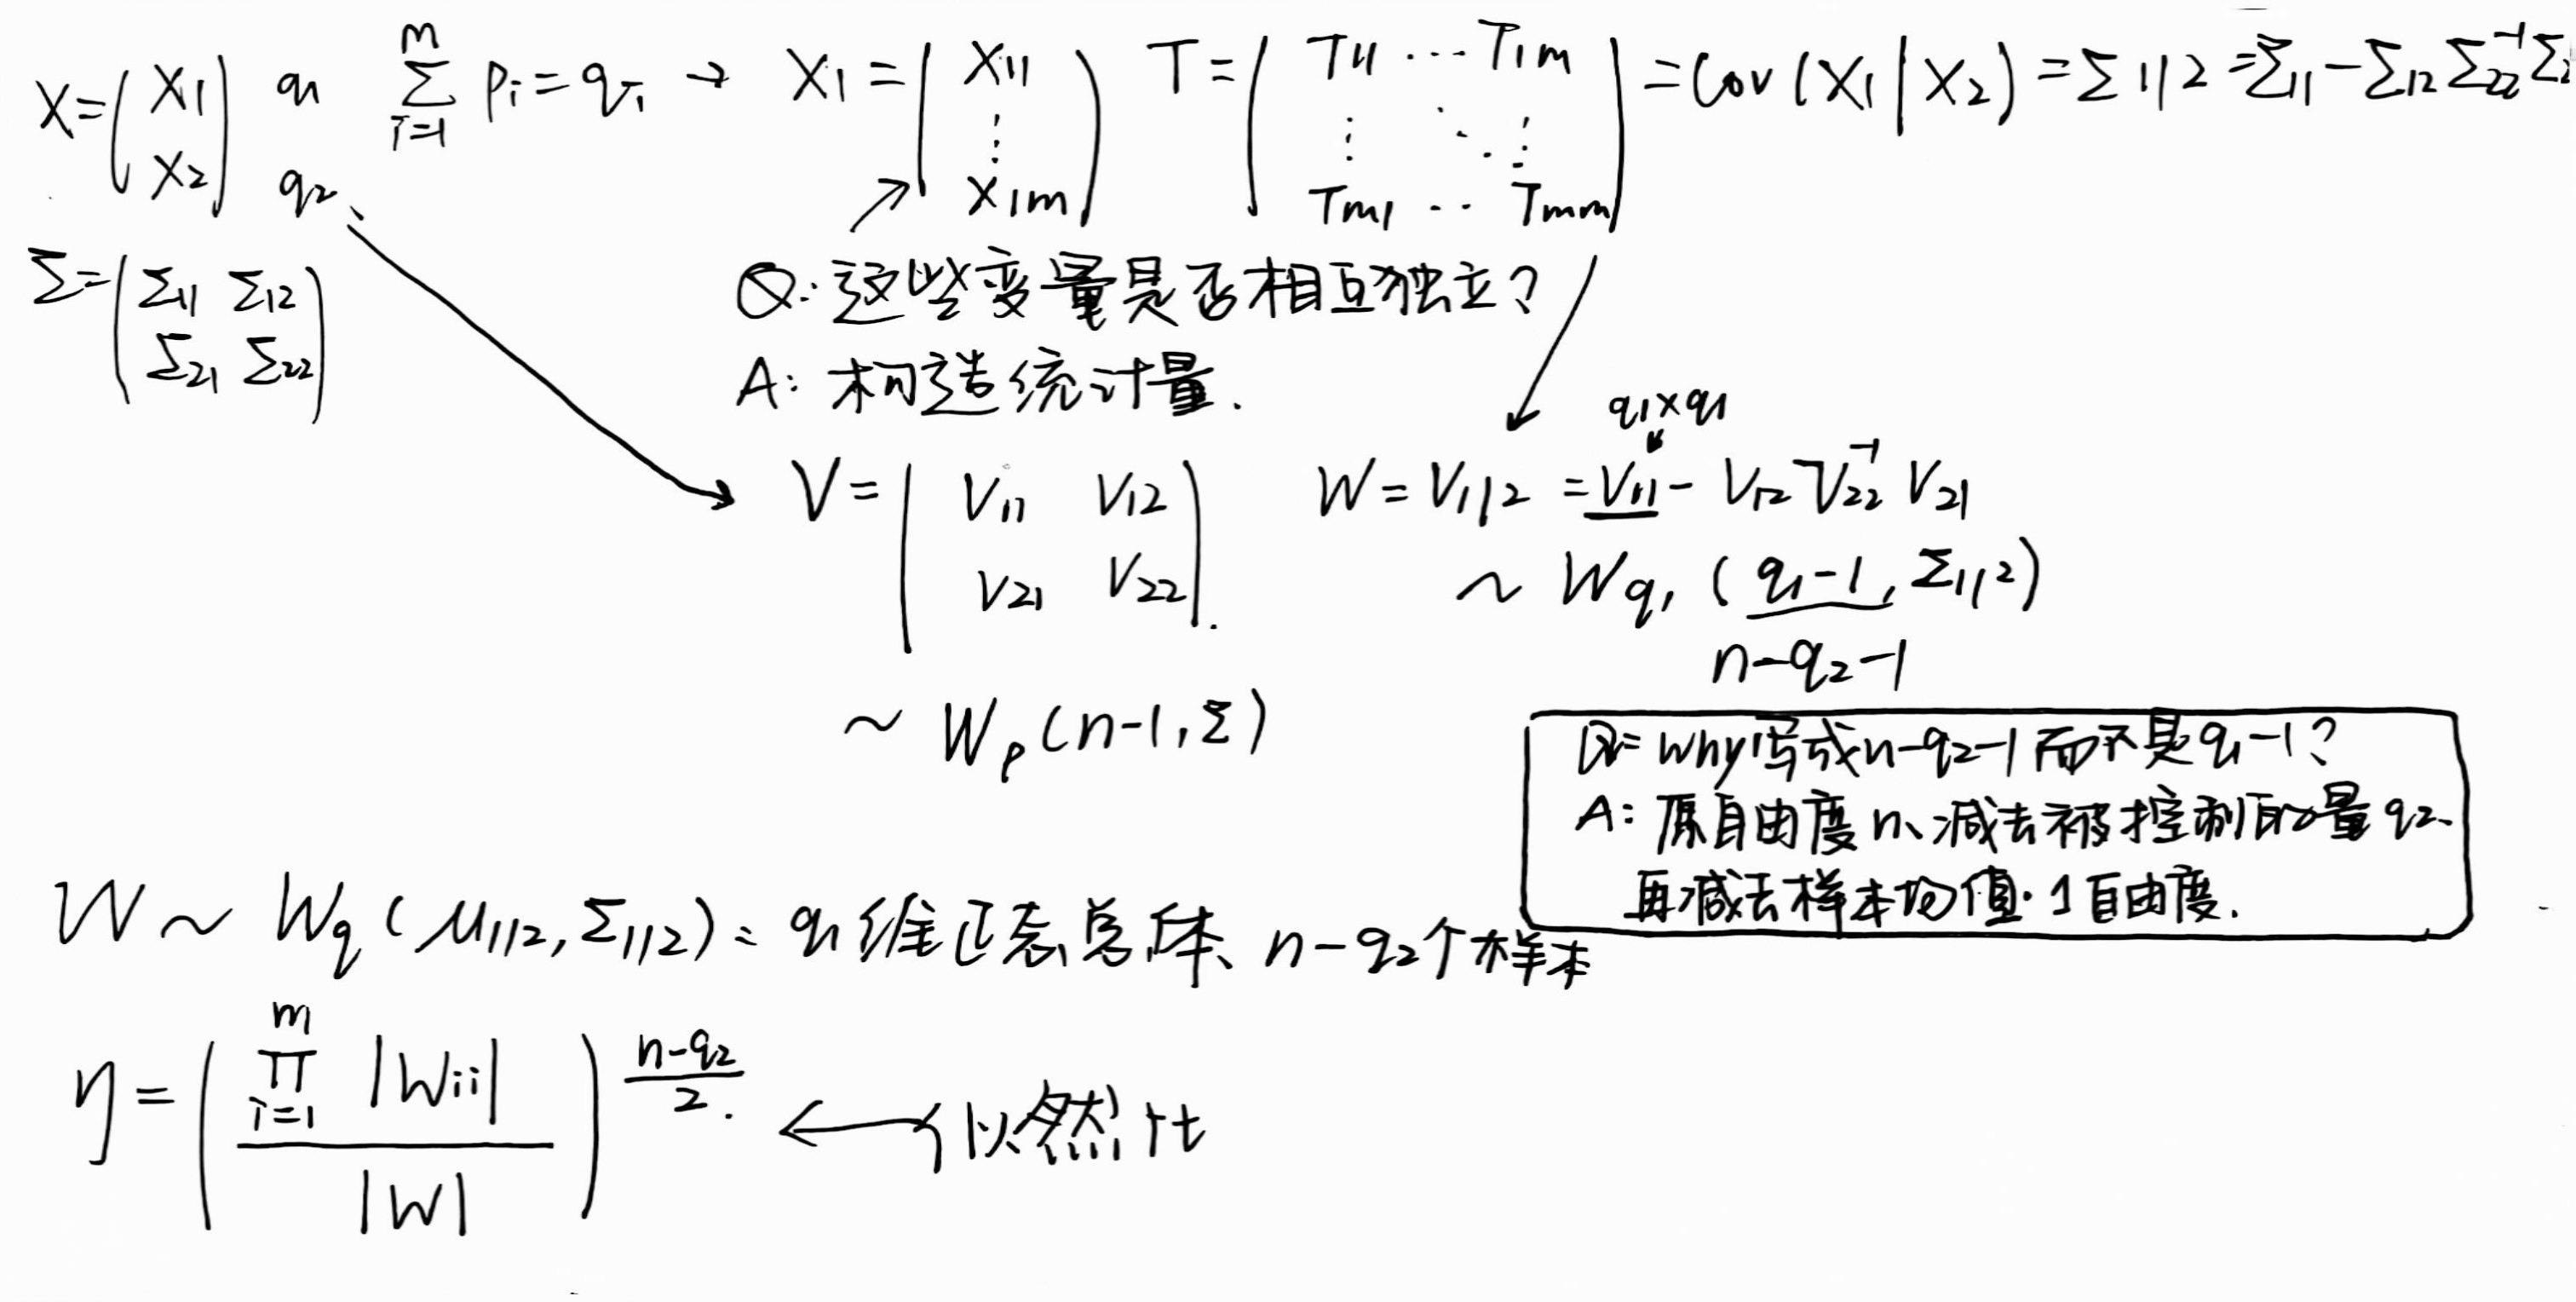 X=(X1 X2) q1 q2 m∑i=1 Pi=q1 → X1=(X11 ⋮ X1m) T=(T11 ⋯ T1m ⋮ ⋱ ⋮ Tm1 ⋯ Tmm) =Cov(X1|X2)=Σ1|2=Σ11-Σ12Σ22^-1Σ2
Σ=(Σ11 Σ12 Σ21 Σ22)
Q:这些变量是否相互独立?
A:构造统计量.
q1×q1
V=(V11 V12 V21 V22) W=V1|2=V11-V12V22^-1V21
~Wq1(q1-1,Σ1|2)
n-q2-1
~Wp(n-1,Σ)
Q:Why写成n-q2-1而不是q1-1?
A:原自由度n、减去被控制的量q2、
再减去样本均值·1自由度.
W~Wq(μ1|2,Σ1|2):q1维正态总体、n-q2个样本
η=(m∏i=1|Wii| / |W|)^(n-q2/2) ← 似然比